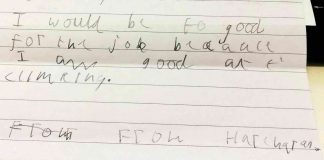 I would be to good
for the job because
I am good at
climbing.
From From Harcharan.